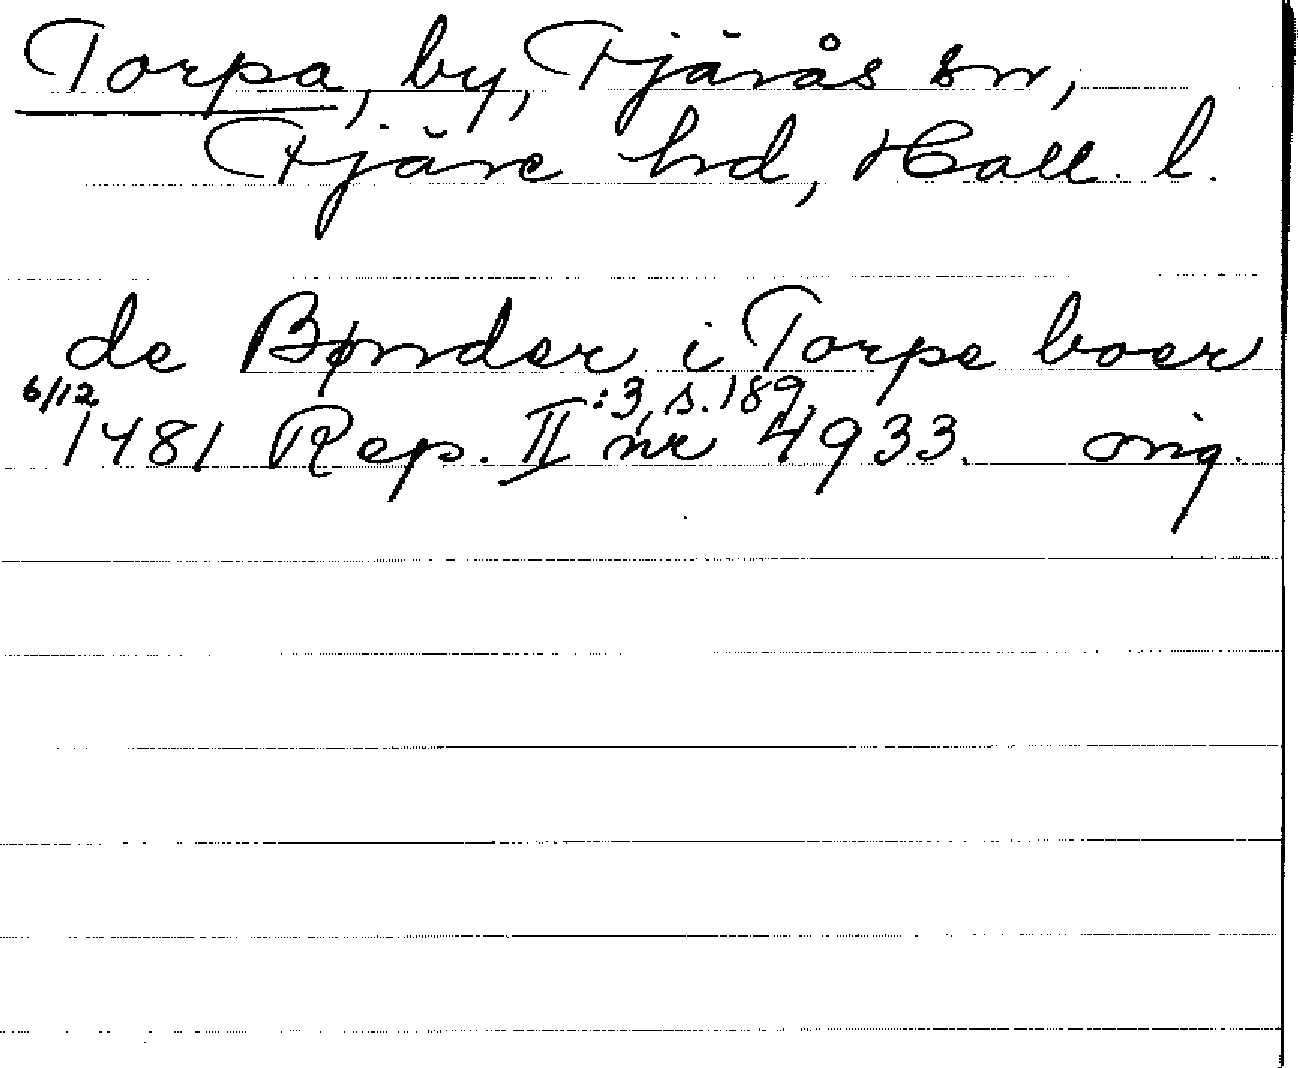 Torpa, by, Fjärås sn,
Fjäre hd, Hall. l.
de Bønder i Torpe boer
6/12 1481 Rep. II:3, s. 189 nr 4933. orig.